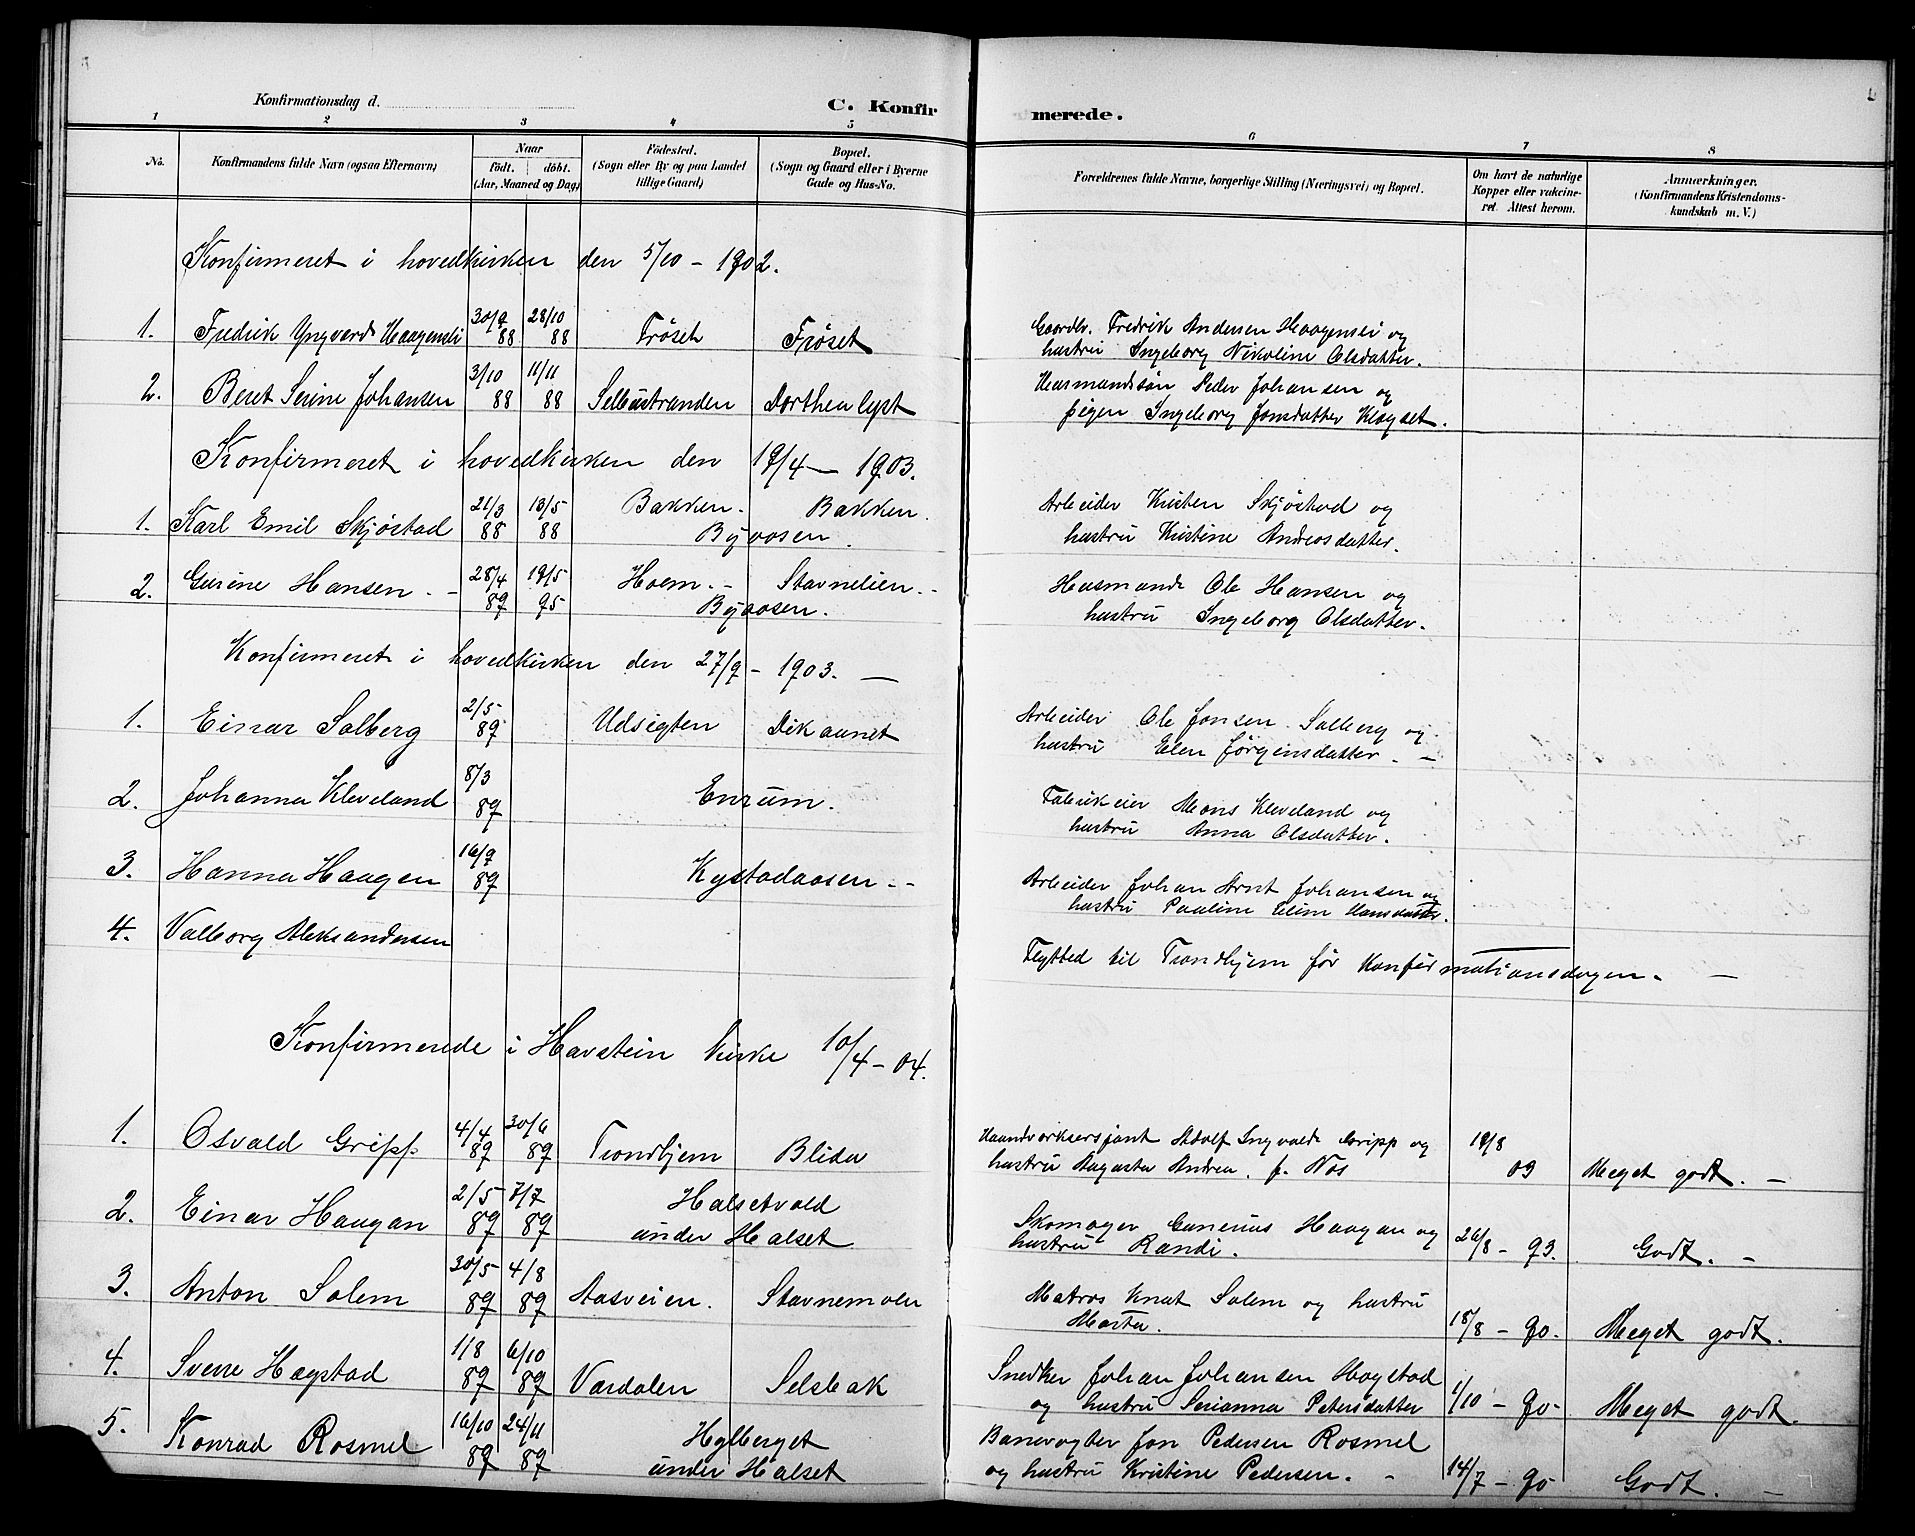 Konfirmationsdag d. C. Konfirmerede.
1 2 3 4 5 6 7 8
No. Konfirmandens fulde Navn (ogsaa Efternavn) Naar födt. döbt. (Aar, Maaned og Dag) Födested. (Sogn eller By og paa Landet tillige Gaard) Bopæl. (Sogn og Gaard eller i Byerne Gade og Hus-No. Forældrenes fulde Navne, borgerlige Stilling (Næringsvei) og Bopæl. Om havt de naturlige Kopper eller vakcineret. Attest herom. Anmærkninger. (Konfirmandens Kristendomskundskab m. V.)
Konfirmeret i hovedkirken den 5/10 - 1902.
1. Fredrik Yngvard Haagensli 30/9 88 28/10 88 Fröset Fröset Gaardbr. Fredrik Andersen Haagensli og
hustru Ingeborg Nikoline Olsdatter.
2. Beret Serine Johansen 3/10 88 11/11 88 Selbustranden Dorthealyst Husmandssön Peder Johansen og
pigen Ingeborg Jonsdatter
Konfirmeret i hovedkirken den 19/4 - 1903.
1. Karl Emil Skjöstad 21/3 88 13/5 88 Bakken. Bakken. Arbeider Kristen Skjöstad og
Byaasen. hustru Kristine Andreasdatter.
2. Gurine Hansen. - 28/4 89 19/5 95 Hoem. - Stavnelien. - Husmand Ole Hansen og
Byaasen. hustru Ingeborg Olsdatter.
Konfirmeret i hovedkirken den 27/9 - 1903. -
1. Einar Solberg 2/5 89 Udsigten Dikaunet Arbeider Ole Jonsen Solberg og
hustru Elen Jørgensdatter. -
2. Johanna Kleveland 8/3 89 Enrum. Fabrikeier Mons Kleveland og
hustru Anna Olsdatter.
3. Hanna Haagen 16/9 89 Kystadaasen. - Arbeider Johan Arnt Johansen og
hustru Pauline Hansdatter.
4. Valborg Aleksandersen Flyttet til Trondhjem før Konfirmationsdagen. -
Konfirmerede i Havstein kirke 10/4 - 04.
1. Osvald Gripp. 4/4 89 30/6 89 Trondhjem Blida Haandverksersjant Adolf Ingvald Gripp og
hustru Augusta Andrea. f. Nos 19/8 03 Meget godt. -
2. Einar Haugan 2/5 89 7/7 89 Halsetvald
under Halset Skomager Gunerius Haagan og
hustru Randi. 26/8 - 93. Godt. -
3. Anton Solem 30/5 89 4/8 89 Aasveien. Stavnemolen Matros Knut Solem og hustru
Marta. 18/8 - 90. Meget godt.
4. Sverre Hagstad 1/8 89 6/10 89 Værdalen Selsbak Snedker Johan Johansen Hagstad
og hustru Serianna Petersdatter 1/10 - 90 - Meget godt.
5. Konrad Rosmel 16/10 89 24/11 89 Hylberget
under Halset Banevogter Jon Pedersen Rosmel
og hustru Kristine Pedersen. - 14/7 - 90 Godt. -